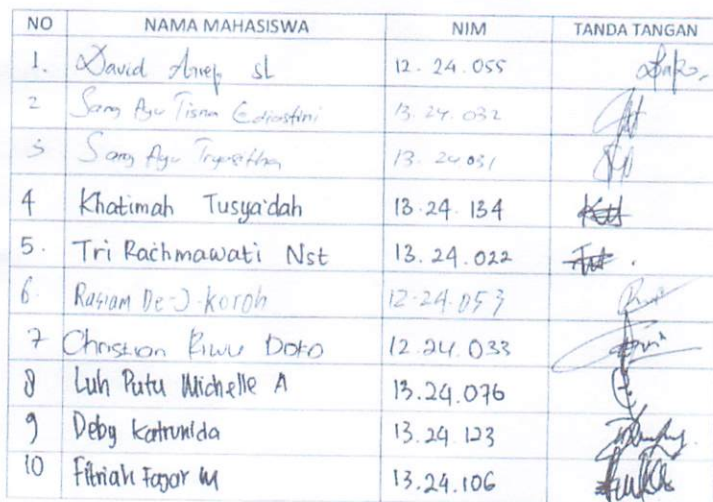 NO NAMA MAHASISWA NIM TANDA TANGAN
1. David St 12.24.055
2 Sang Ayu Tisna 13.24.032
3 Sang Ayu 13.24.031
4 Khatimah Tusya'dah 13.24.134
5. Tri Rachmawati Nst 13.24.022
6. Rasiam De-J-Koroh 12-24.053
7 Christian Riwu Doko 12.24.033
8 Luh Putu Michelle A 13.24.076
9 Deby Katrunida 13.24.123
10 Fitriah Fajar M 13.24.106